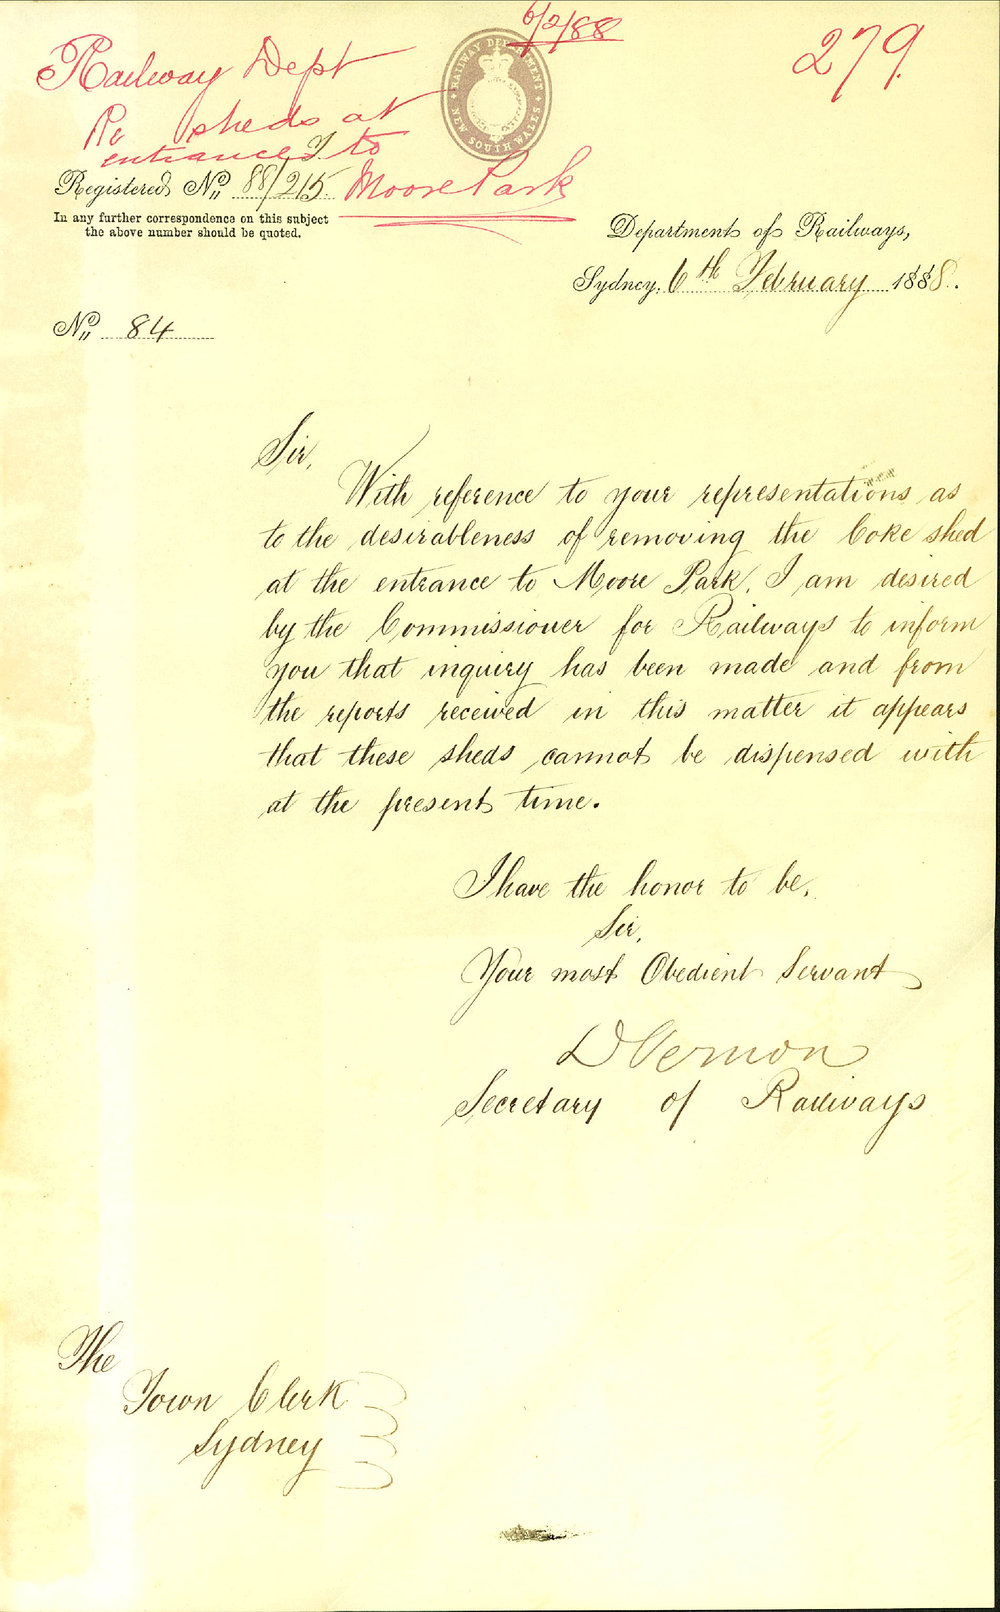 6/2/88
279.
Railway Dept
Re sheds at
entrance to
Moore Park
RAILWAY DEPARTMENT
NEW SOUTH WALES
Registered No. 88/215.
In any further correspondence on this subject
the above number should be quoted.
Department of Railways,
Sydney, 6th February 1888.
No. 84
Sir,
With reference to your representations as
to the desirableness of removing the Coke shed
at the entrance to Moore Park, I am desired
by the Commissioner for Railways to inform
you that inquiry has been made and from
the reports received in this matter it appears
that these sheds cannot be dispensed with
at the present time.
I have the honor to be,
Sir,
Your most Obedient Servant
D Vernon
Secretary of Railways
The
Town Clerk
Sydney